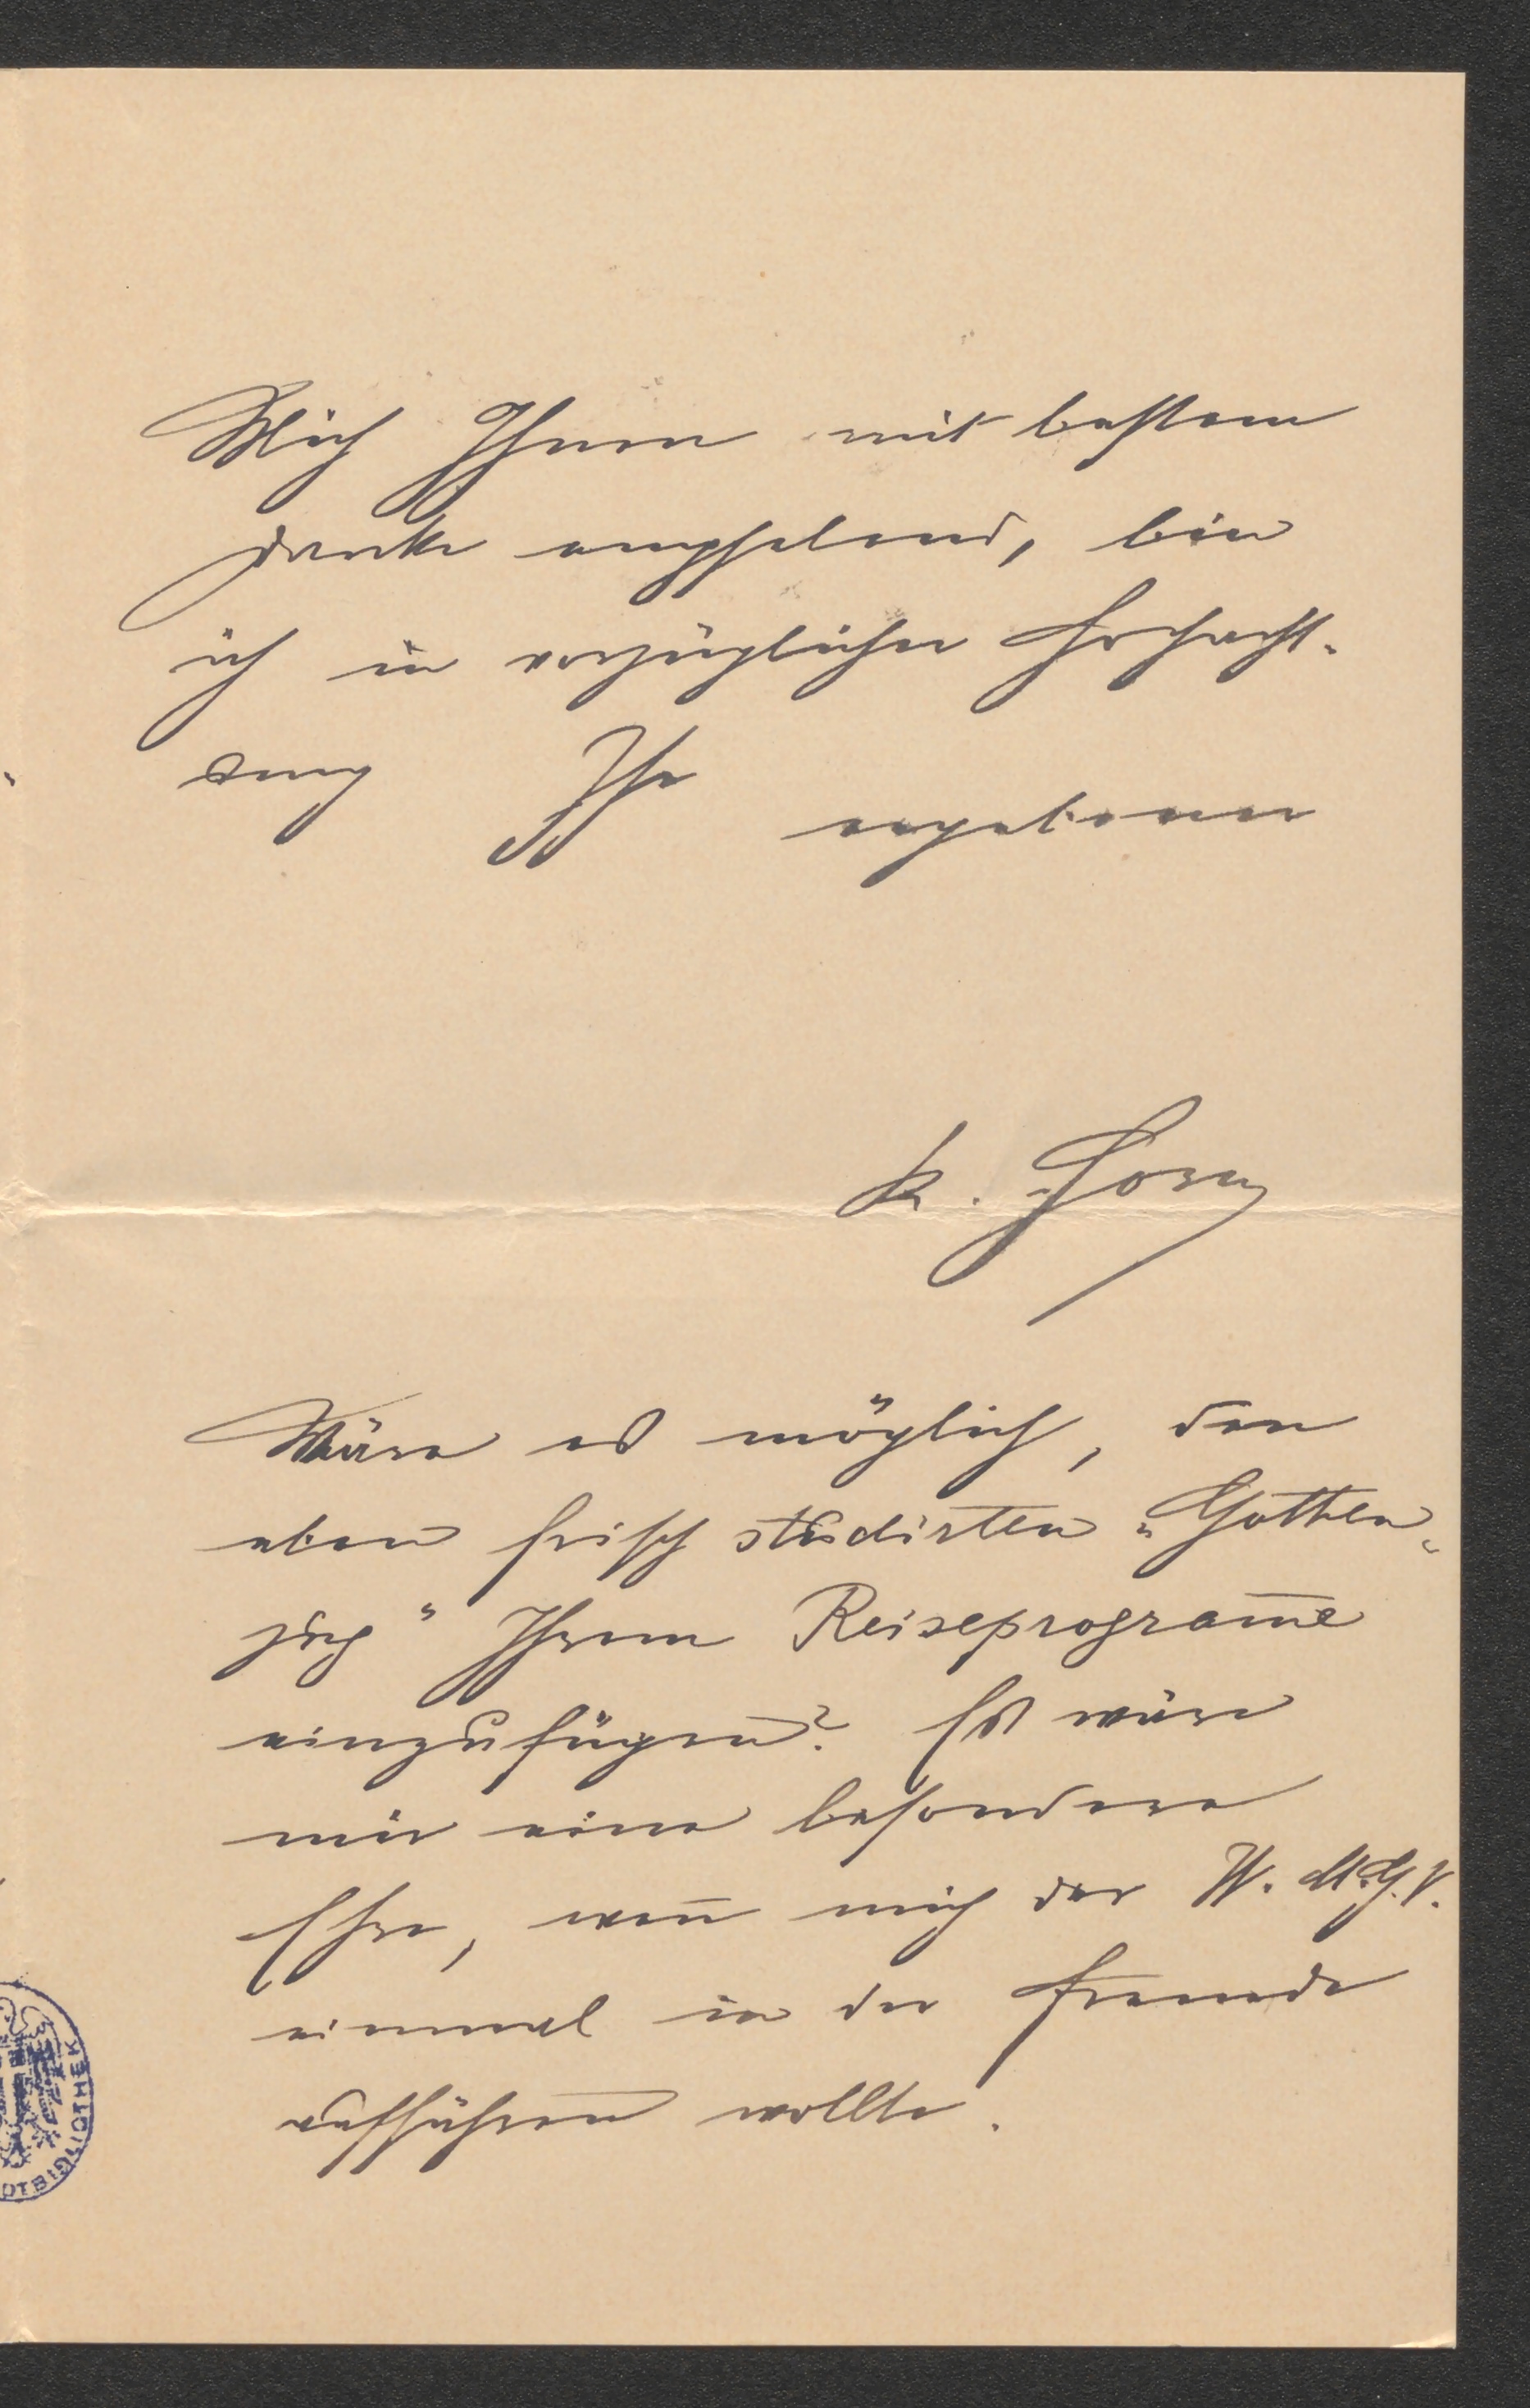 Mich Ihnen mit bestem
Danke empfelend, bin
ich in vorzüglicher Hochacht-
ung Ihr
ergebener
K.
Wäre es möglich, den
eben frisch studirten „Gothen-
zug" Ihrem Reiseprogram̅e
einzufügen? Es wäre
mir eine besondere
Ehre, wen̅ mich der W. M.G.V.
einmal in der Fremde
aufführen wollte.
DTBIBLIOTHEK